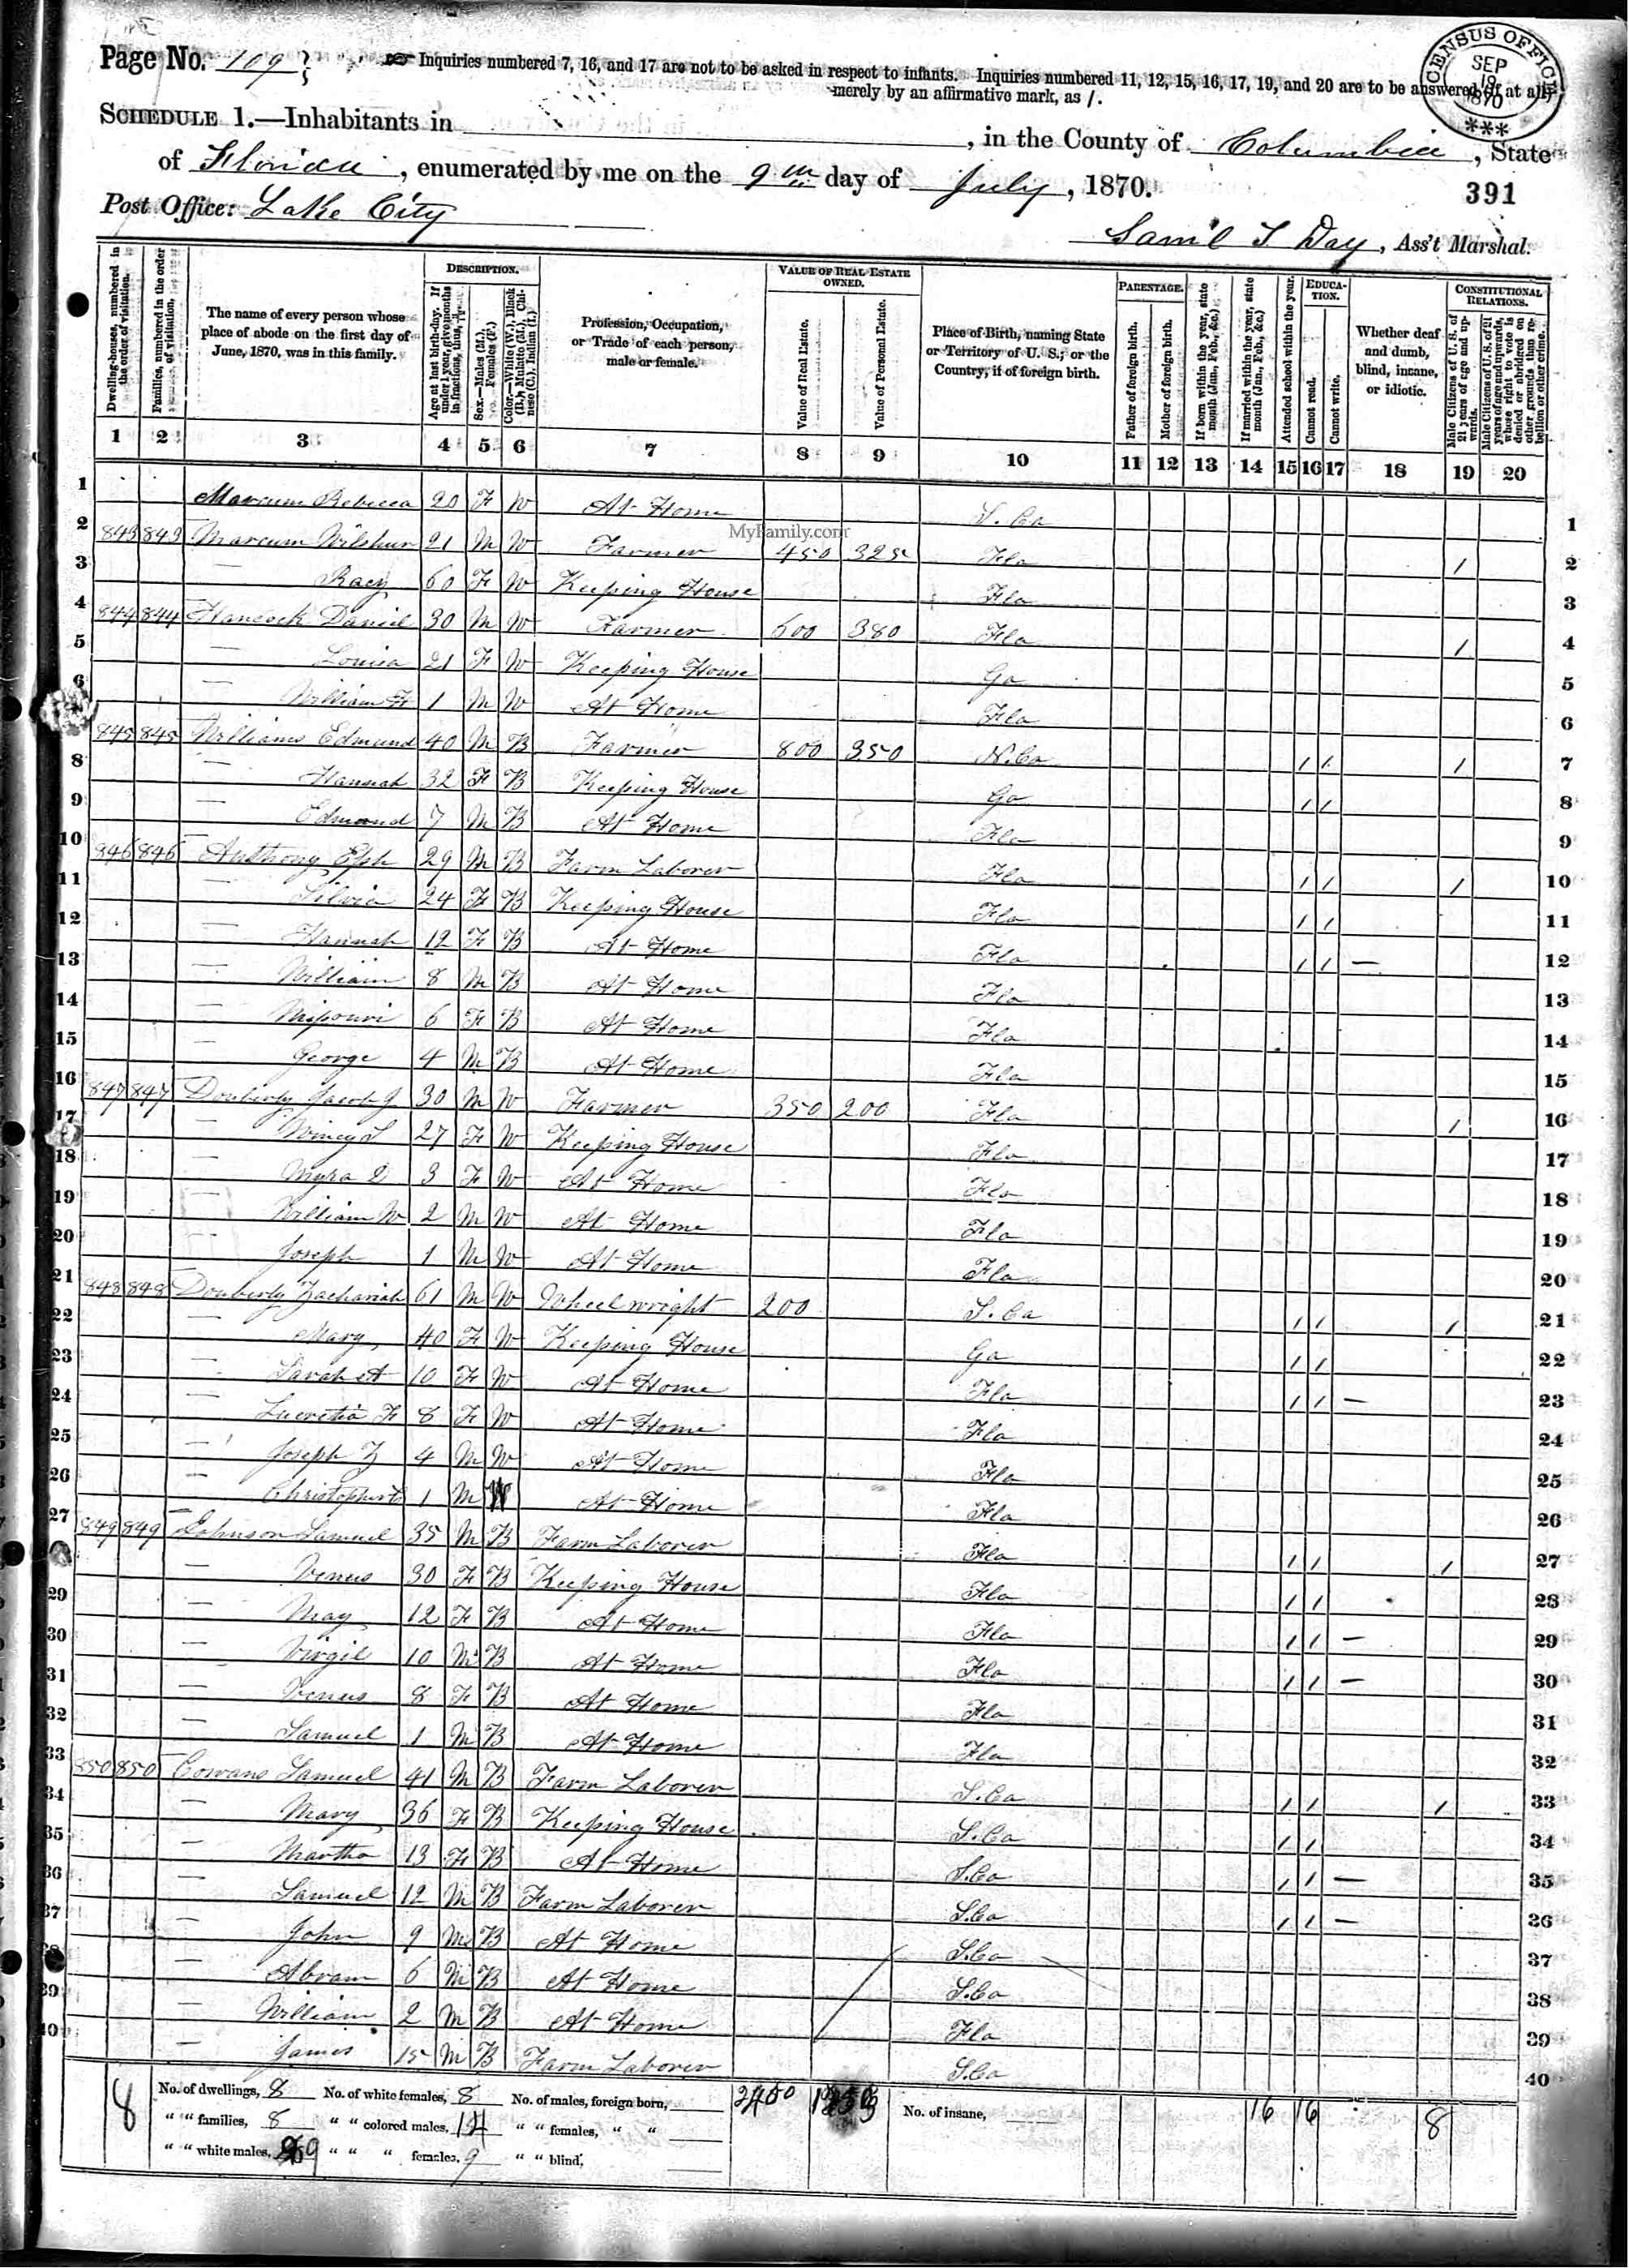 Page No. 109
Inquiries numbered 7, 16, and 17 are not to be asked in respect to infants. Inquiries numbered 11, 12, 15, 16, 17, 19, and 20 are to be answered (if at all)
merely by an affirmative mark, as /.
CENSUS OFFICE SEP 19 1870 ***
SCHEDULE 1.—Inhabitants in , in the County of Columbia, State
of Florida, enumerated by me on the 9th day of July, 1870.
391
Post Office: Lake City
Sam'l T Day, Ass't Marshal.
Dwelling-houses, numbered in the order of visitation.
Families, numbered in the order of visitation.
The name of every person whose place of abode on the first day of June, 1870, was in this family.
DESCRIPTION.
Age at last birth-day. If under 1 year, give months in fractions, thus,
Sex.—Males (M.), Females (F.)
Color.—White (W.), Black (B.), Mulatto (M.), Chinese (C.), Indian (I.)
Profession, Occupation, or Trade of each person, male or female.
VALUE OF REAL ESTATE OWNED.
Value of Real Estate.
Value of Personal Estate.
Place of Birth, naming State or Territory of U. S.; or the Country, if of foreign birth.
PARENTAGE.
Father of foreign birth.
Mother of foreign birth.
If born within the year, state month (Jan., Feb., &c.)
If married within the year, state month (Jan., Feb., &c.)
Attended school within the year.
EDUCATION.
Cannot read.
Cannot write.
Whether deaf and dumb, blind, insane, or idiotic.
CONSTITUTIONAL RELATIONS.
Male Citizens of U. S. of 21 years of age and upwards.
Male Citizens of U. S. of 21 years of age and upwards, whose right to vote is denied or abridged on other grounds than rebellion or other crime.
1 2 3 4 5 6 7 8 9 10 11 12 13 14 15 16 17 18 19 20
1 Marcum Rebecca 20 F W At Home S. Ca 1
2 843 843 Marcum Wilshur 21 M W Farmer 450 325 Fla / 2
MyFamily.com
3 — Racy 60 F W Keeping House Fla 3
4 844 844 Hancock Daniel 30 M W Farmer 600 380 Fla / 4
5 — Louisa 21 F W Keeping House Ga 5
6 — William F 1 M W At Home Fla 6
845 845 Williams Edmund 40 M B Farmer 800 350 N. Ca / / / 7
8 — Hannah 32 F B Keeping House Ga / / 8
9 — Edmund 7 M B At Home Fla 9
10 846 846 Anthony Eph 29 M B Farm Laborer Fla / / / 10
11 — Silvia 24 F B Keeping House Fla / / 11
12 — Hannah 12 F B At Home Fla / / — 12
13 — William 8 M B At Home Fla 13
14 — Missouri 6 F B At Home Fla 14
15 — George 4 M B At Home Fla 15
16 847 847 Douberly Jacob J 30 M W Farmer 350 200 Fla / 16
17 — Winey S 27 F W Keeping House Fla 17
18 — Myra D 3 F W At Home Fla 18
19 — William W 2 M W At Home Fla 19
20 — Joseph 1 M W At Home Fla 20
21 848 848 Douberly Zachariah 61 M W Wheelwright 200 S. Ca / / / 21
22 — Mary 40 F W Keeping House Ga / / 22
23 — Sarah A 10 F W At Home Fla / / — 23
24 — Lucretia F 8 F W At Home Fla 24
25 — Joseph Z 4 M W At Home Fla 25
26 — Christopher 1 M W At Home Fla 26
27 849 849 Johnson Samuel 35 M B Farm Laborer Fla / / / 27
— Venus 30 F B Keeping House Fla / / 28
29 — May 12 F B At Home Fla / / — 29
30 — Virgil 10 M B At Home Fla / / — 30
31 — Venus 8 F B At Home Fla 31
32 — Samuel 1 M B At Home Fla 32
33 850 850 Cowans Samuel 41 M B Farm Laborer S. Ca / / / 33
34 — Mary 36 F B Keeping House S. Ca / / 34
35 — Martha 13 F B At Home S. Ca / / — 35
36 — Samuel 12 M B Farm Laborer S. Ca / / — 36
37 — John 9 M B At Home S. Ca 37
38 — Abram 6 M B At Home S. Ca 38
39 — William 2 M B At Home Fla 39
40 — James 15 M B Farm Laborer S. Ca 40
8 No. of dwellings, 8 No. of white females, 8 No. of males, foreign born, 2400 No. of insane, 16 16 8
" " families, 8 " " colored males, 14 " " females, " "
" " white males, 9 " " " females, 9 " " blind,